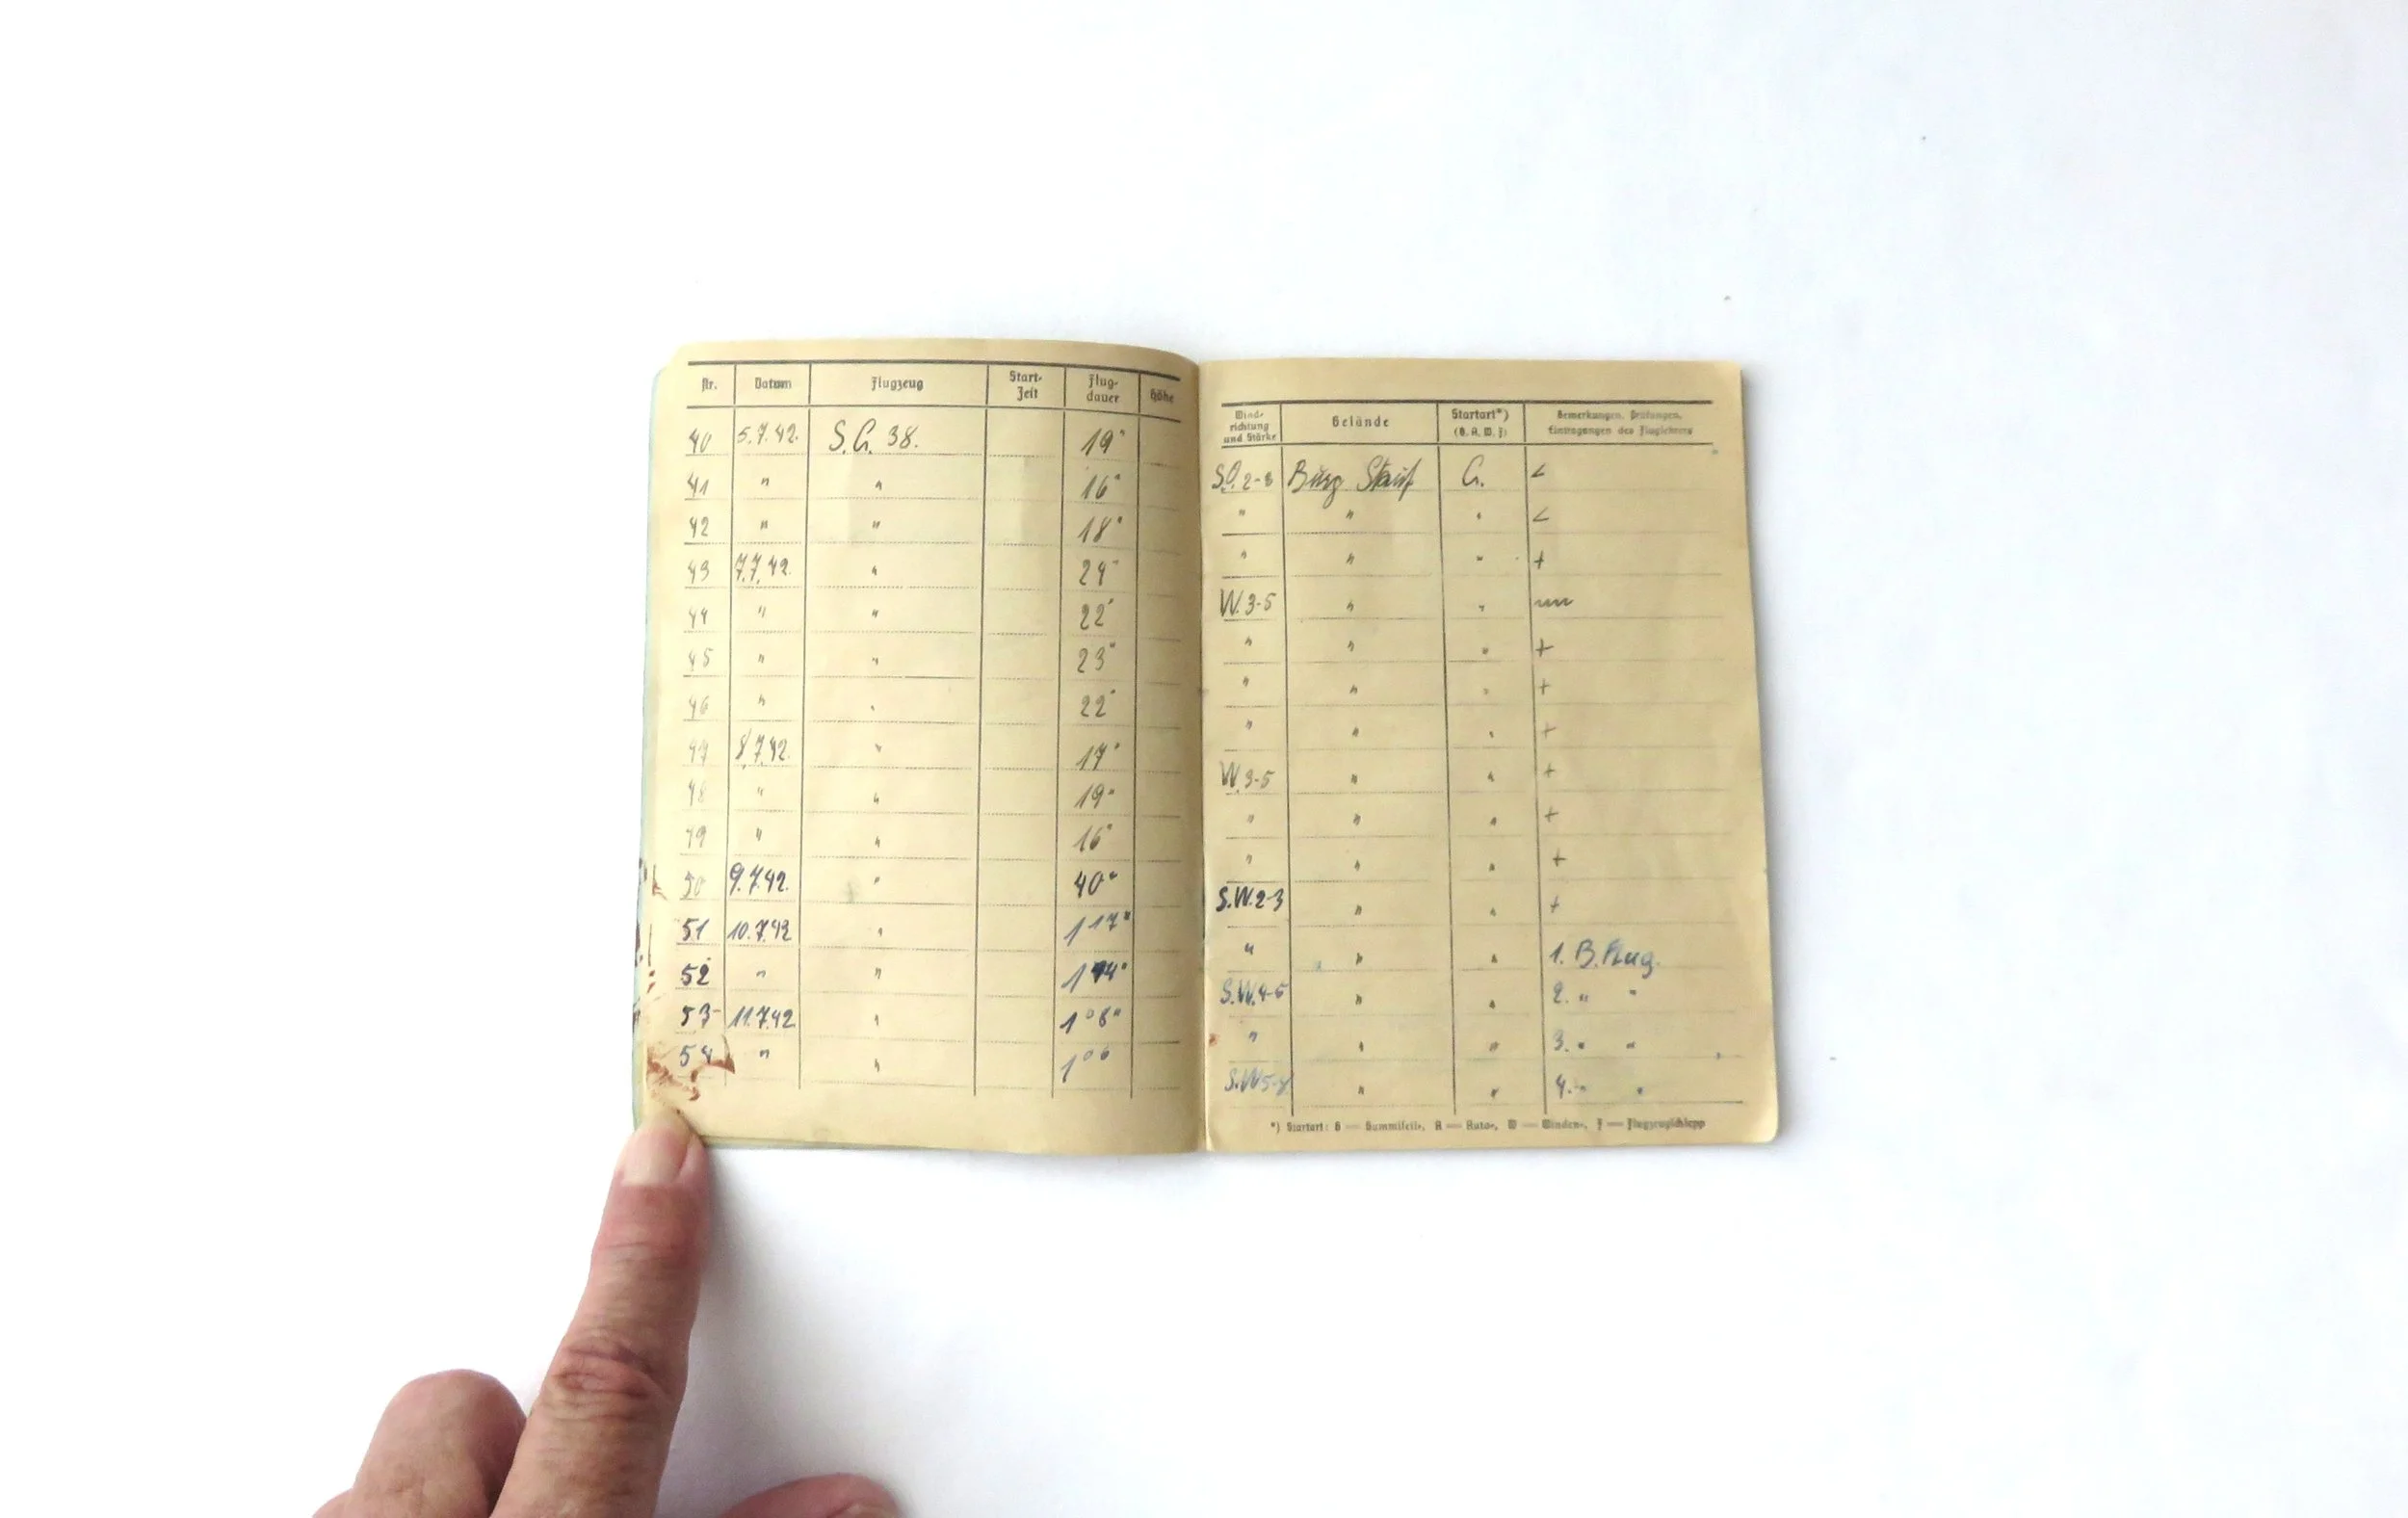 Nr. Datum Flugzeug Start-Zeit Flug-dauer Höhe
40 5.7.42. S.G. 38. 19"
41 " " 16"
42 " " 18"
43 7.7.42. " 24"
44 " " 22"
45 " " 23"
46 " " 22"
47 8.7.42. " 17"
48 " " 19"
49 " " 16"
50 9.7.42. " 40"
51 10.7.42 " 1 17"
52 " "
53 11.7.42 " 1 08"
54 " " 1 06
Wind-richtung und Stärke Gelände Startart*) (G, A, W, F) Bemerkungen, Prüfungen, Eintragungen des Fluglehrers
S.O. 2-3 Burg Stauf G. <
" " " <
" " " +
W. 3-5 " "
" " " +
" " " +
" " " +
W. 3-5 " " +
" " " +
" " " +
S.W. 2-3 " " +
" " " 1. B. Flug.
S.W. 4-5 " " 2. " "
" " " 3. " "
S.W. " " 4. " "
*) Startart: G — Gummiseil-, A — Auto-, W — Winden-, F — Flugzeugschlepp